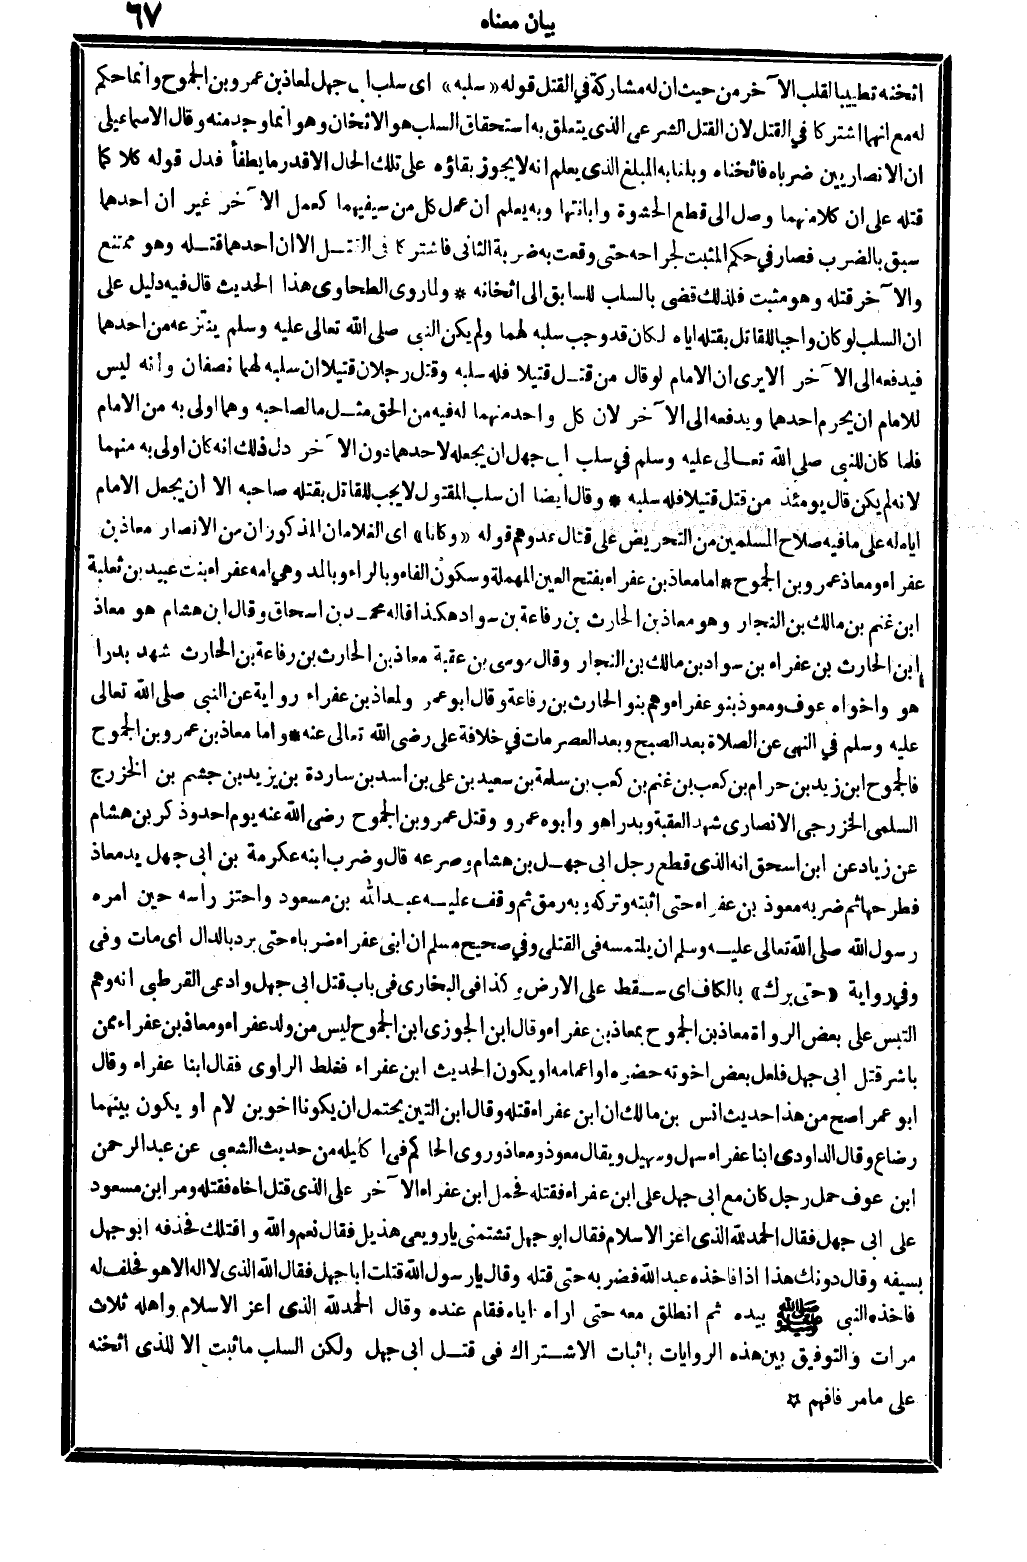 بيان معناه ٦٧
اثخنه تطييبا لقلب الآخر من حيث ان له مشاركة في القتل قوله «سلبه» اى سلب ابى جهل لمعاذ بن عمرو بن الجموح وانما حكم
له مع انهما اشتركا في القتل لان القتل الشرعى الذى يتعلق به استحقاق السلب هو الاثخان وهو انما وجد منه وقال الاسماعيلى
ان الانصاريين ضرباه فاثخناه وبلغا به المبلغ الذى يعلم انه لا يجوز بقاؤه على تلك الحال الا قدر ما يطفأ فدل قوله كلا كما
قتله على ان كلا منهما وصل الى قطع الحشوة وابانتها وبه يعلم ان عمل كل من سيفيهما كعمل الآخر غير ان احدهما
سبق بالضرب فصار في حكم المثبت لجراحه حتى وقعت به ضربة الثانى فاشتركا في القتل الا ان احدهما قتله وهو ممتنع
والآخر قتله وهو مثبت فلذلك قضى بالسلب للسابق الى اثخانه * ولما روى الطحاوى هذا الحديث قال فيه دليل على
ان السلب لو كان واجبا للقاتل بقتله اياه لكان قد وجب سلبه لهما ولم يكن النبى صلى الله تعالى عليه وسلم ينتزعه من احدهما
فيدفعه الى الآخر الا يرى ان الامام لو قال من قتل قتيلا فله سلبه وقتل رجلان قتيلا ان سلبه لهما نصفان وأنه ليس
للامام ان يحرم احدهما ويدفعه الى الآخر لان كل واحد منهما له فيه من الحق مثل ما لصاحبه وهما اولى به من الامام
فلما كان للنبى صلى الله تعالى عليه وسلم في سلب ابى جهل ان يجعله لاحدهما دون الآخر دل ذلك انه كان اولى به منهما
لانه لم يكن قال يومئذ من قتل قتيلا فله سلبه * وقال ايضا ان سلب المقتول لا يجب للقاتل بقتله صاحبه الا أن يجعل الامام
اياه له على ما فيه صلاح المسلمين من التحريض على قتال عدوهم قوله «وكانا» اى الغلامان المذكوران من الانصار معاذ بن
عفراء ومعاذ عمرو بن الجموح * اما معاذ بن عفراء بفتح العين المهملة وسكون الفاء وبالراء وبالمد وهي امه عفراء بنت عبيد بن ثعلبة
ابن غنم بن مالك بن النجار وهو معاذ بن الحارث بن رفاعة بن سواد هكذا قاله محمد بن اسحاق وقال ابن هشام هو معاذ
ابن الحارث بن عفراء بن سواد بن مالك بن النجار وقال موسى بن عقبة معاذ بن الحارث بن رفاعة بن الحارث شهد بدرا
هو واخواه عوف ومعوذ بنو عفراء وهم بنو الحارث بن رفاعة وقال ابو عمر ولمعاذ بن عفراء رواية عن النبى صلى الله تعالى
عليه وسلم في النهى عن الصلاة بعد الصبح وبعد العصر مات في خلافة على رضى الله تعالى عنه * واما معاذ بن عمرو بن الجموح
فالجموح ابن زيد بن حرام بن كعب بن غنم بن كعب بن سلمة بن سعيد بن على بن اسد بن ساردة بن يزيد بن جشم بن الخزرج
السلمى الخزرجى الانصارى شهد العقبة وبدرا هو وأبوه عمرو وقتل عمرو بن الجموح رضى الله عنه يوم احد وذكر بن هشام
عن زياد عن ابن اسحق انه الذى قطع رجل ابى جهل بن هشام وصرعه قال وضرب ابنه عكرمة بن ابى جهل يد معاذ
فطرحها ثم ضربه معوذ بن عفراء حتى اثبته وتركه وبه رمق ثم وقف عليه عبد الله بن مسعود واحتز رأسه حين امره
رسول الله صلى الله تعالى عليه وسلم ان يلتمسه فى القتلى وفي صحيح مسلم ان ابنى عفراء ضرباه حتى برد بالدال اى مات وفى
وفي رواية «حتى برك» بالكاف اى سقط على الارض وكذا فى البخارى فى باب قتل ابى جهل وادعى القرطبى انه وهم
التبس على بعض الرواة معاذ بن الجموح بمعاذ بن عفراء وقال ابن الجوزى ابن الجموح ليس من ولد عفراء ومعاذ بن عفراء ممن
باشر قتل ابى جهل فلعل بعض اخوته حضره او اعمامه او يكون الحديث ابن عفراء فغلط الراوى فقال ابنا عفراء وقال
ابو عمر اصح من هذا حديث انس بن مالك ان ابن عفراء قتله وقال ابن التين يحتمل ان يكونا اخوين لام او يكون بينهما
رضاع وقال الداودى ابنا عفراء سهل وسهيل ويقال معوذ ومعاذ وروى الحاكم فى اكليله من حديث الشعبى عن عبد الرحمن
ابن عوف حمل رجل كان مع ابى جهل على ابن عفراء فقتله فحمل ابن عفراء الآخر على الذى قتل اخاه فقتله ومر ابن مسعود
على ابى جهل فقال الحمد لله الذى اعز الاسلام فقال ابو جهل تشتمنى يا رويعى هذيل فقال نعم والله واقتلك فحذفه ابو جهل
بسيفه وقال دونك هذا اذا فاخذه عبد الله فضربه حتى قتله وقال يا رسول الله قتلت ابا جهل فقال الله الذى لا اله الا هو فحلف له
فاخذه النبى ﷺ بيده ثم انطلق معه حتى اراه اياه فقام عنده وقال الحمد لله الذى اعز الاسلام واهله ثلاث
مرات والتوفيق بين هذه الروايات باثبات الاشتراك فى قتل ابى جهل ولكن السلب ما ثبت الا للذى اثخنه
على ما مر فافهم ☆